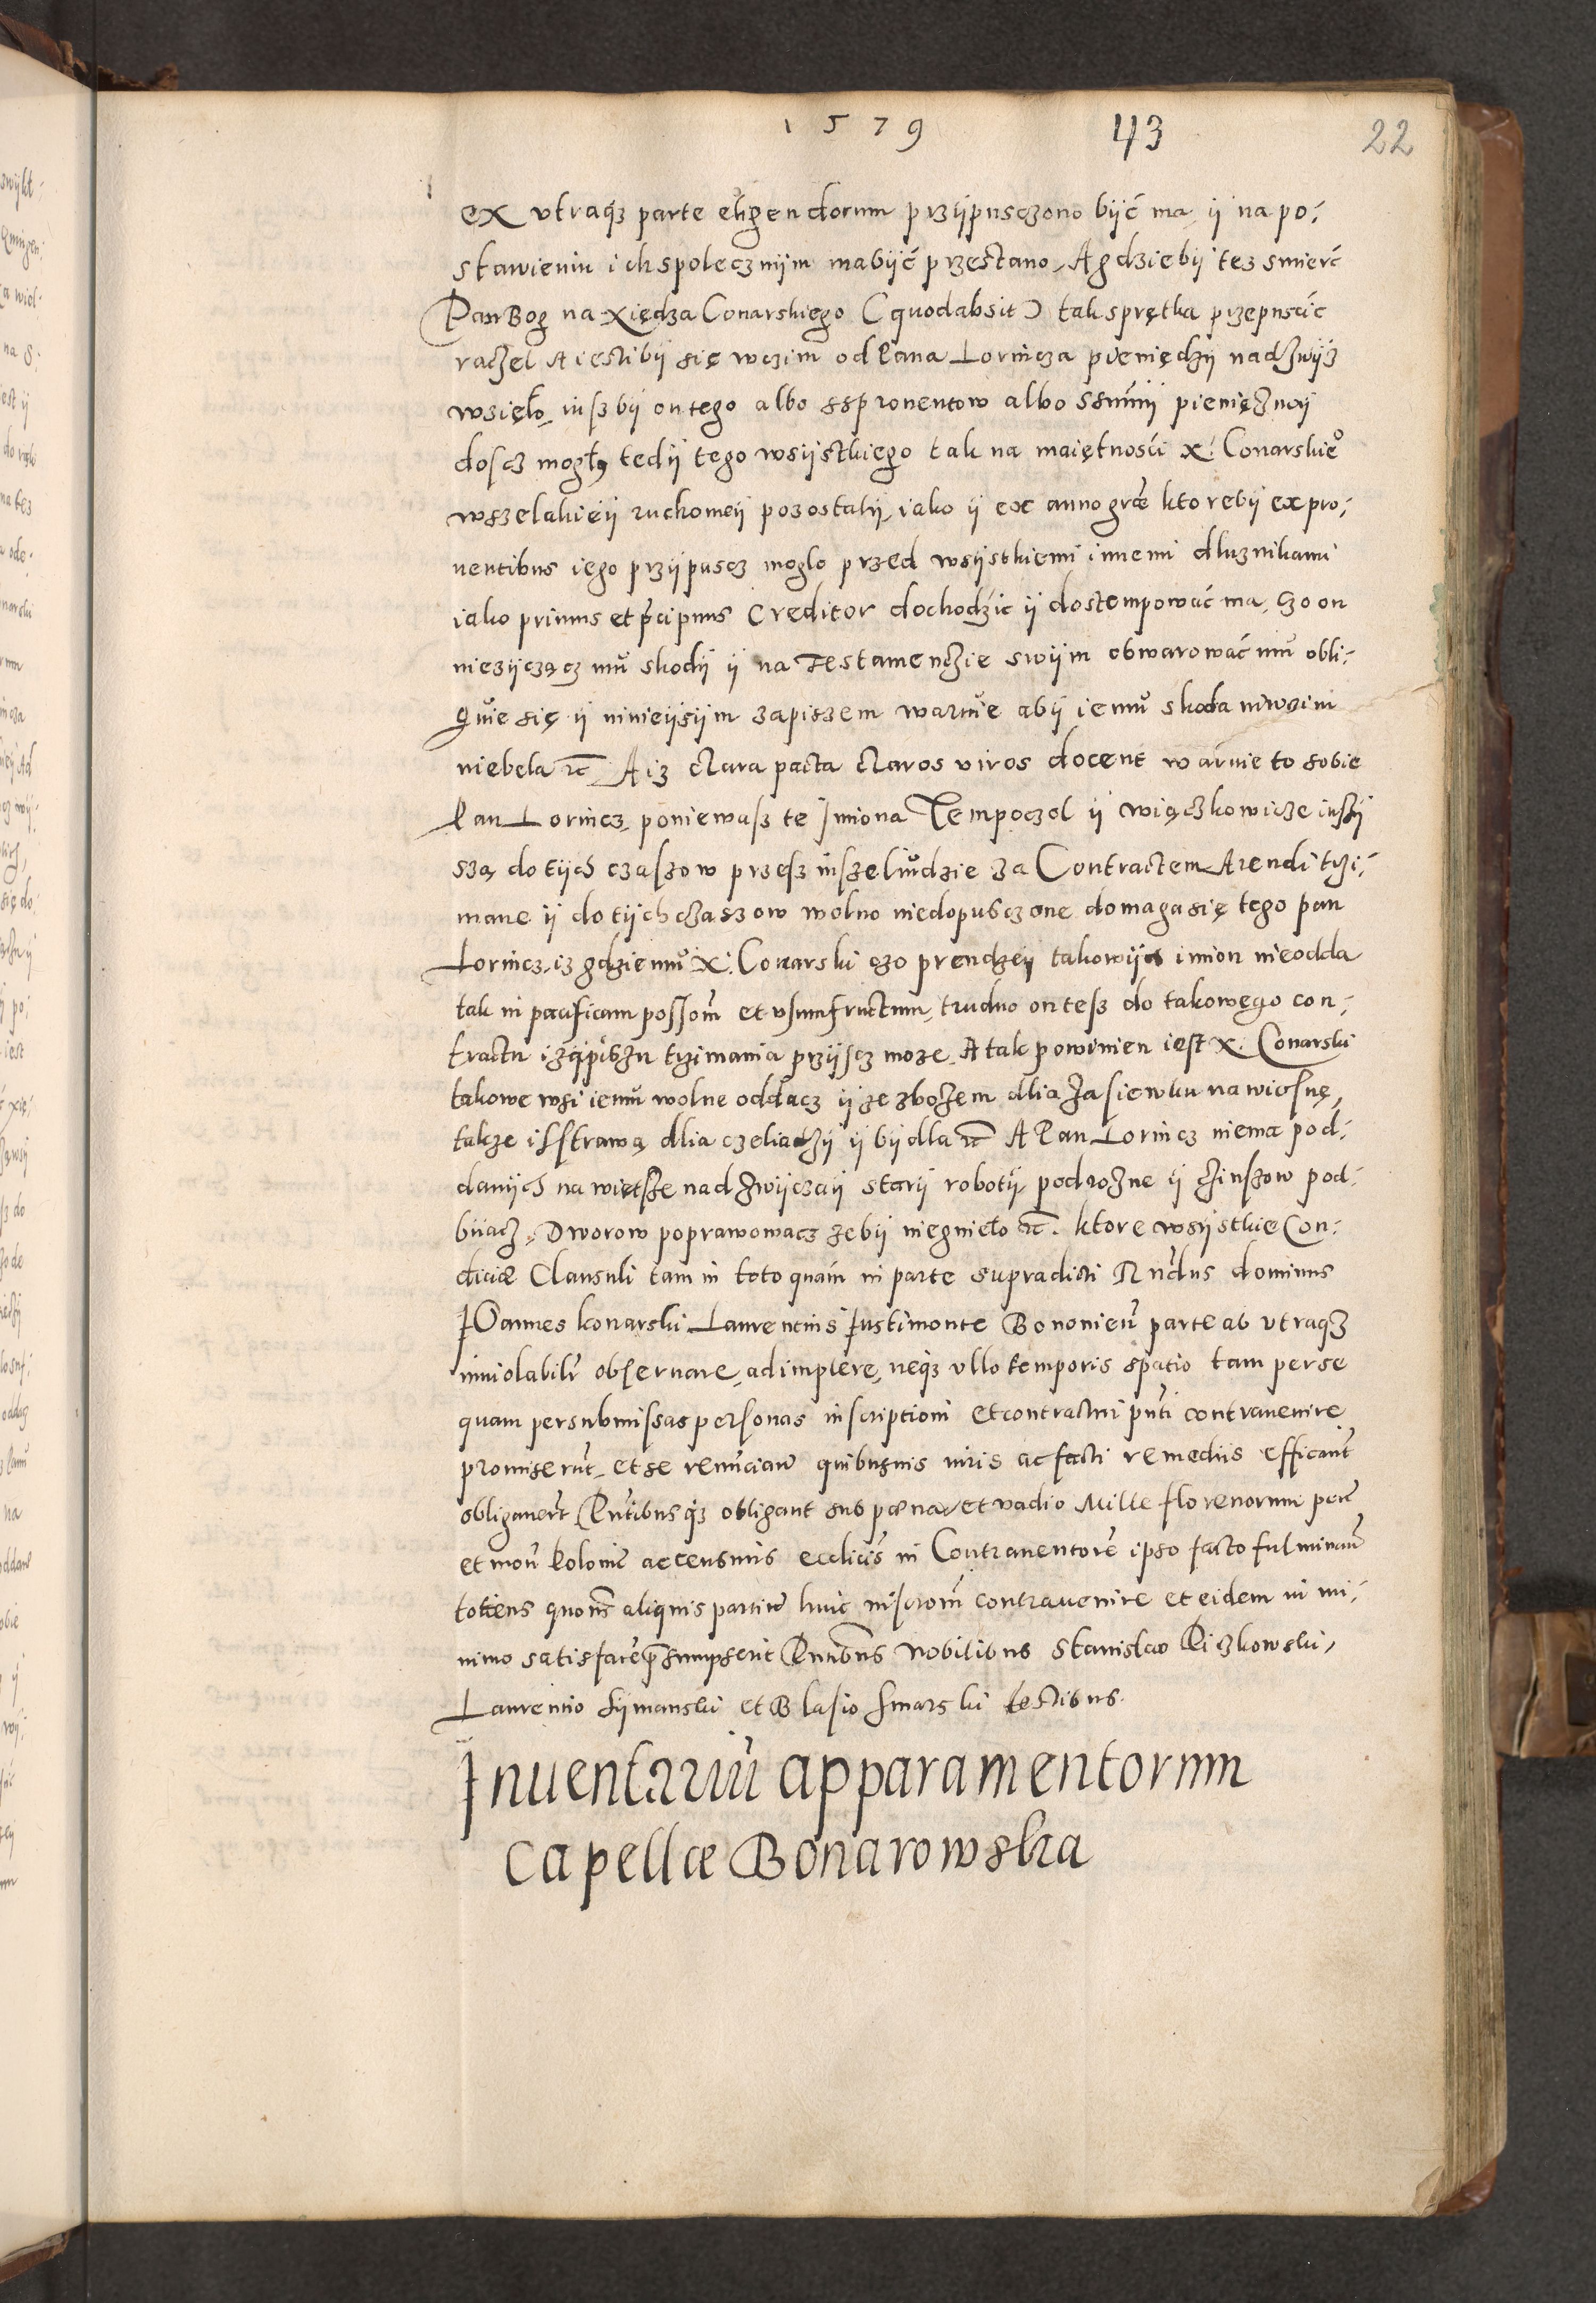 1579 43 22
ex vtraqꝫ parte eligendorum przÿpusczono bÿć ma ÿ na po-
stawieniu ich spolecznÿm ma bÿć przestano, A gdziebÿ tez smierć
Pan Bog na Xiędza Conarskiego (quod absit) tak sprętka przepuscić
raczel A iestlibÿ się wczim od Pana Lorincza pieniędzÿ nadzwÿż
wsięło, nisz bÿ on tego albo ssprouentow albo Summÿ pieniężnaÿ
doscz mogł, tedÿ tego wsÿstkiego tak na maiętnosci X: Conarskieo
wszelakieÿ ruchomeÿ pozostałÿ, iako ÿ ex anno græ ktorebÿ ex pro-
uentibus iego przÿpuscz moglo przed wsÿstkiemi innemi dluznikami
iako primus et pcipuus Creditor dochodzić ÿ dostempować ma, czo on
niezÿczącz mu skodÿ ÿ na Testamenczie swÿm obwarować mu obli-
guie się ÿ ninieÿsÿm zapiszem waruie abÿ iemu skoda niwczim
niebela ꝛc A iz clara pacta claros viros docent waruie to sobie
Pan Lorincz, poniewasz te Imiona Tempoczol ÿ więczkowicze inszÿ
sza, do tÿch czaszow przesz insze ludzie za Contractem Arendi trzi-
mane ÿ do tÿch czaszow wolno niedopusczone domaga się tego pan
Lorincz, iz gdzie mu X: Conarski czo prendzeÿ takowÿch imion nieodda
tak in pacificam possom et vsumfructum, trudno on tesz do takowego con-
tractu trzimania przÿscz moze, A tak powinien iest X. Conarski
takowe wsi iemu wolne oddacz ÿ ze zbożem dlia zasiewku na wiosnę,
takze isstrawą dlia czeliadzÿ ÿ bÿdla ꝛc A Pan Lorincz niema pod-
danÿch na więtsze nadzwÿczaÿ starÿ robotÿ, podrożne ÿ czinszow pod-
bijacz, Dworow poprawowacz zebÿ niegnieło ꝛc. ktore wsÿstkie Con-
diciæ Clausuli tam in toto quam in parte supradicti Rndus dominus
Joannes konarski Laurentius Justimonte Bononien parte ab vtraqꝫ
inuiolabilr obseruare, adimplere, neqꝫ vllo temporis spatio tam per se
quam per submissas personas inscriptioni et contractui pnti contrauenire
promiserut, et se renunciaw quibusuis iuris ac facti remediis efficacit
obligauert Pntibusqꝫ obligant sub pœna et vadio Mille florenorum pecu
et mon Polonie ac censuris ecclicis in Contrauentore ipso facto fulminaw
totiens quotis aliquis partium huic inscrioni contrauenire et eidem in mi-
nimo satisfacere psumpserit Pntibus Nobilibus Stanislao Piczkowski,
Laurentio Sÿmanski et Blasio Smarski testibus.
Inuentariu apparamentorum
Capellæ Bonarowska